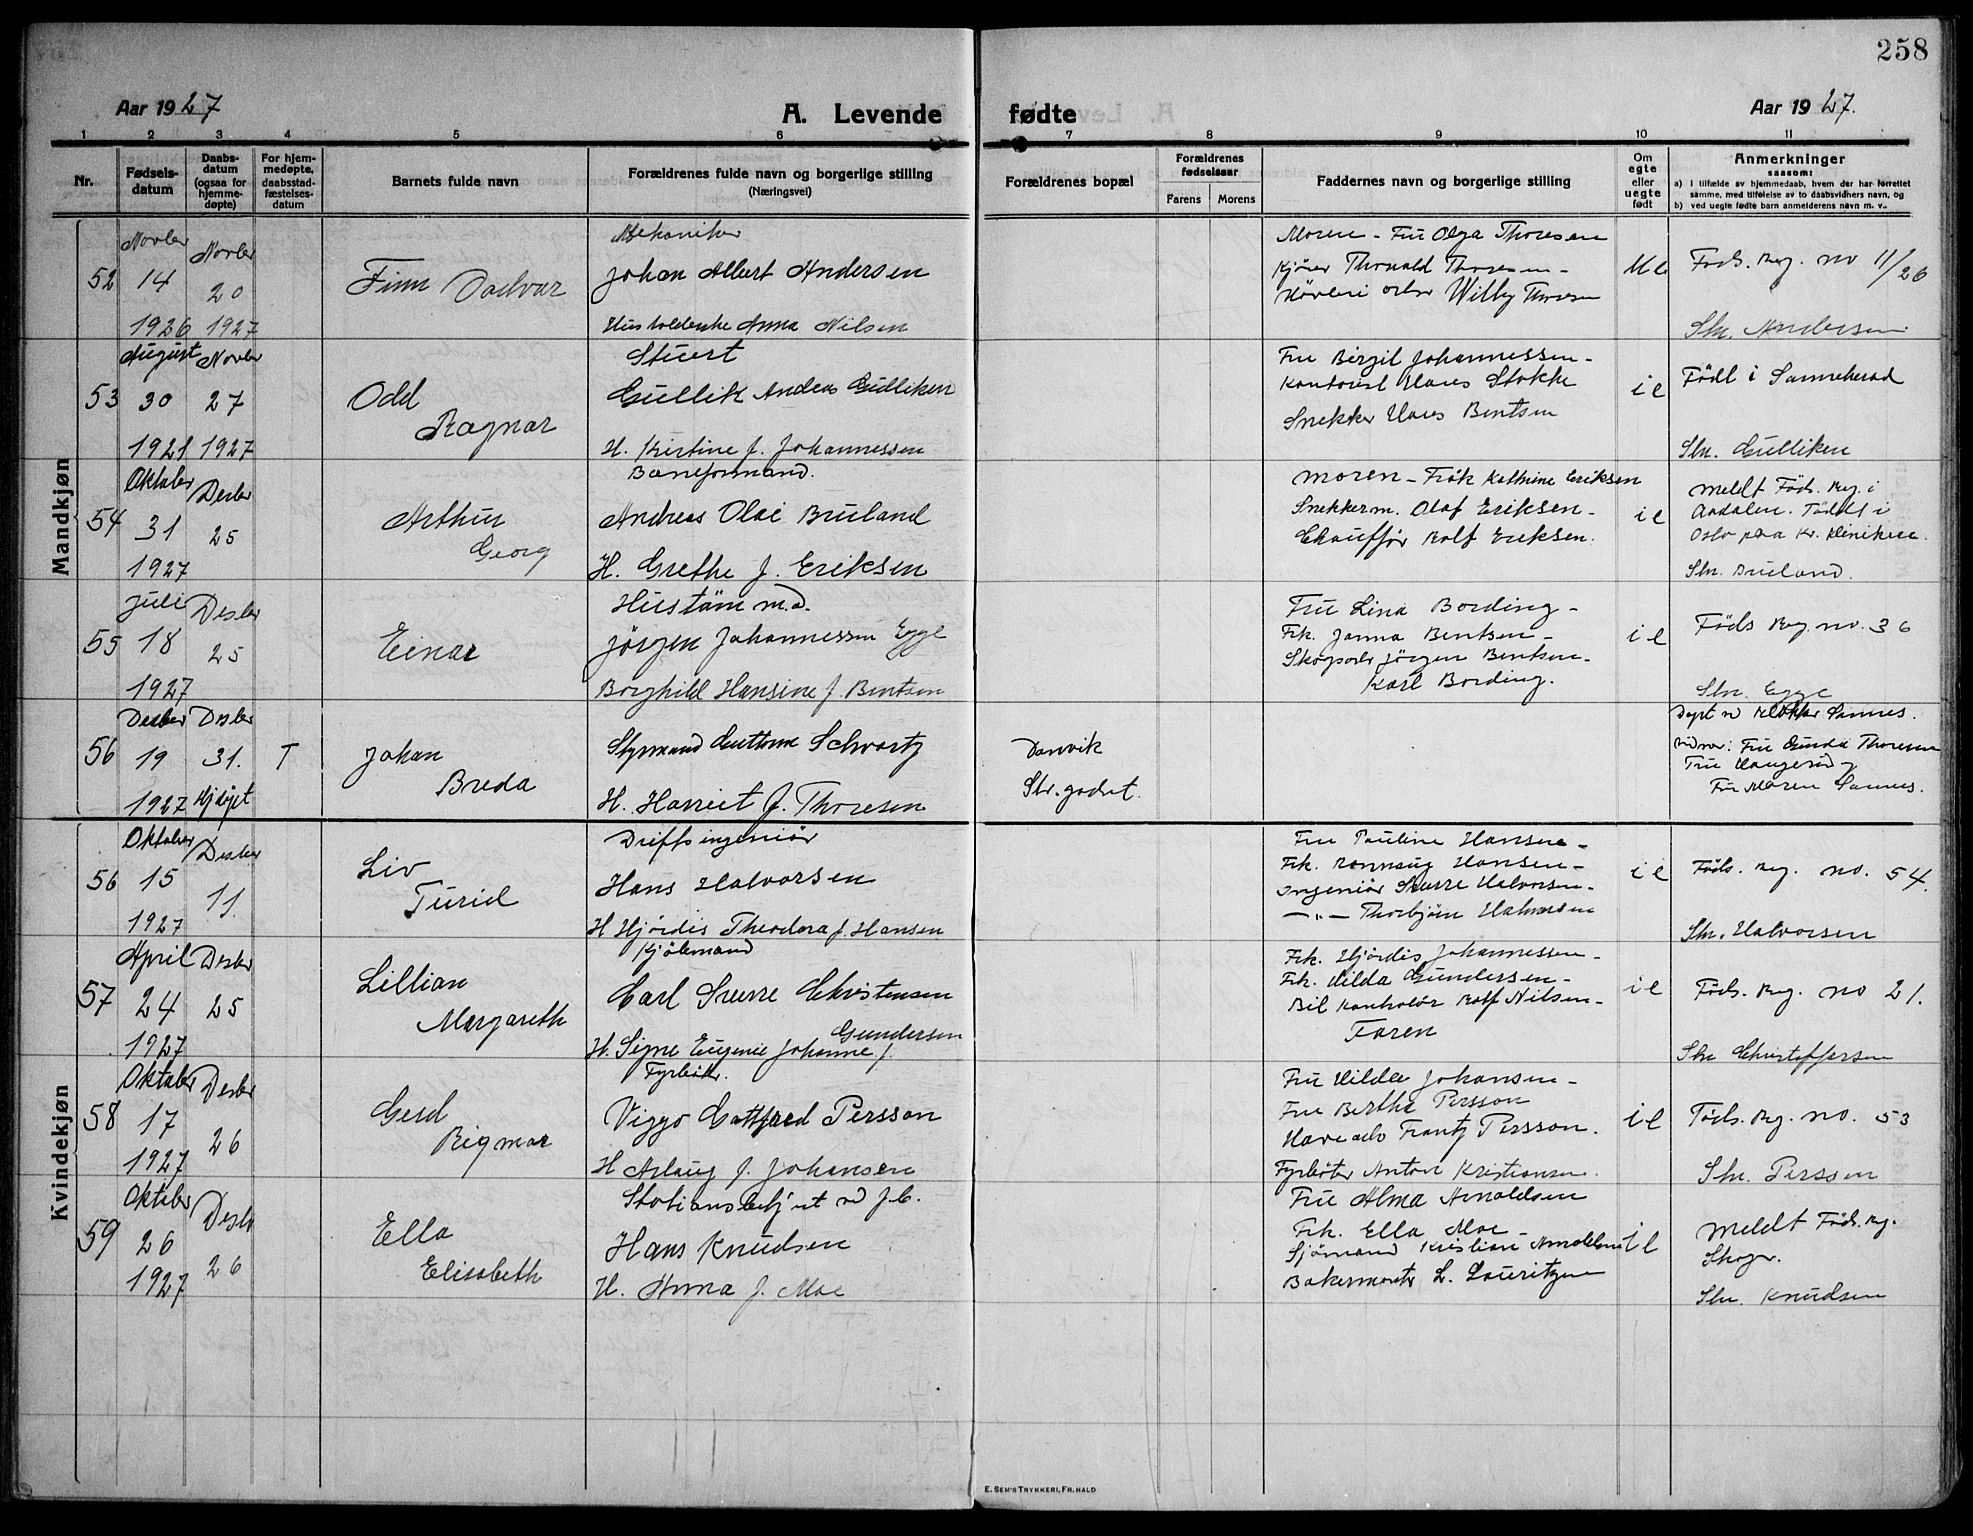 258
Aar 1927
A. Levende
fødte
Aar 1927.
1 2 3 4 5 6 7 8 9 10 11
Nr.
Fødsels-
datum
Daabs-
datum
(ogsaa for
hjemme-
døpte)
For hjem-
medøpte,
daabsstad-
fæstelses-
datum
Barnets fulde navn
Forældrenes fulde navn og borgerlige stilling
(Næringsvei)
Forældrenes bopæl
Forældrenes
fødselsaar
Farens Morens
Faddernes navn og borgerlige stilling
Om
egte
eller
uegte
født
Anmerkninger
saasom:
a) i tilfælde av hjemmedaab, hvem der har forrettet
samme, med tilføielse av to daabsvidners navn, og
b) ved uegte fødte barn anmelderens navn m. v..
Mandkjøn
52
Novbr
14
1926
Novbr
20
1927
Finn
Mekaniker
Johan Albert Andersen
Anna Nilsen
Moren - Fru Olga Thoresen
Kjører Thorvald Thoresen -
Willy Thoresen
Ue
Føds. Reg. no 11/26
Stn. Andersen
53
August
30
1921
Novbr
27
1927
Odd
Ragnar
Stuert
Gullik Andreas Gulliksen
H. Kirstine f. Johannessen
Fru Birgit Johannessen -
Kontorist Hans Stokke
Snekker Hans Bentsen
i e
Født i Sanneherad
Stn. Gulliksen
54
Oktober
31
1927
Desbr
25
Arthur
Georg
Baneformand.
Andreas Olai Bruland
H. Grethe f. Eriksen
Moren - Frøk Kathrine Eriksen
Snekkerm. Olaf Eriksen -
Chauffør Rolf Eriksen.
i e
Meldt Føds. Reg. i
Aadalen. Født i
Oslo paa Kv. Klinikken.
Stn. Bruland.
55
Juli
18
1927
Desbr
25
Einar
Hustøm m.d.
Jørgen Johannessen Egge
Borghild Hansine f. Bentsen
Fru Lina Bording -
Frk. Janna Bentsen -
Skogsarb Jørgen Bentsen -
Karl Bording.
i e
Føds Reg. no. 36
Stn. Egge
56
Desber
19
1927
Desber
31.
Hj døpt
T
Johan
Breda
Styrmand Guttorm Schwartz
H. Harriet f. Thoresen
Danvik
Str. godset.
Døpt v Klokker Sannes.
Vidner: Fru Gunda Thoresen
Fru Haugerud
Fru Maren Sannes.
Kvindekjøn
56
Oktober
15
1927
Desber
11.
Liv
Turid
Driftsingeniør
Hans Halvorsen
H Hjørdis Theodora f. Hansen
Fru Pauline Hansen -
Frk. Rønnaug Hansen -
Ingeniør Sverre Halvorsen -
— " — Thorbjørn Halvorsen
i e
Føds. Reg. no. 54.
Stn. Halvorsen
57
April
24
1927
Desbr
25
Lillian
Margareth
Kjølemand
Carl Sverre Christensen
H. Signe Eugenie Johanne f. Gundersen
Frk. Hjørdis Johannessen -
Frk. Hilda Gundersen -
Bil Kontrolør Rolf Nilsen -
Faren
i e
Føds. Reg. no 21.
Stn Christoffersen
58
Oktober
17
1927
Desbr
26
Gerd
Rigmar
Fyrbøter.
Viggo Gottfred Persson
H Aslaug f. Johansen
Fru Hilda Johansen -
Fru Berthe Persson
Havearb Frantz Persson.
Fyrbøter Anton Kristiansen.
i e
Føds. Reg. no. 53
Stn. Persson
59
Oktober
26
1927
Desbr
26
Ella
Elisabeth
Stationsbetjent v J.b.
Hans Knudsen
H. Anna f. Moe
Fru Alma Arnoldsen
Frk. Ella Moe
Sjømand Kristian Arnoldsen
Bakermester L. Lauritzen
i e
Meldt Føds. reg.
Skoger.
Stn. Knudsen
E. SEM'S TRYKKERI, FR. HALD